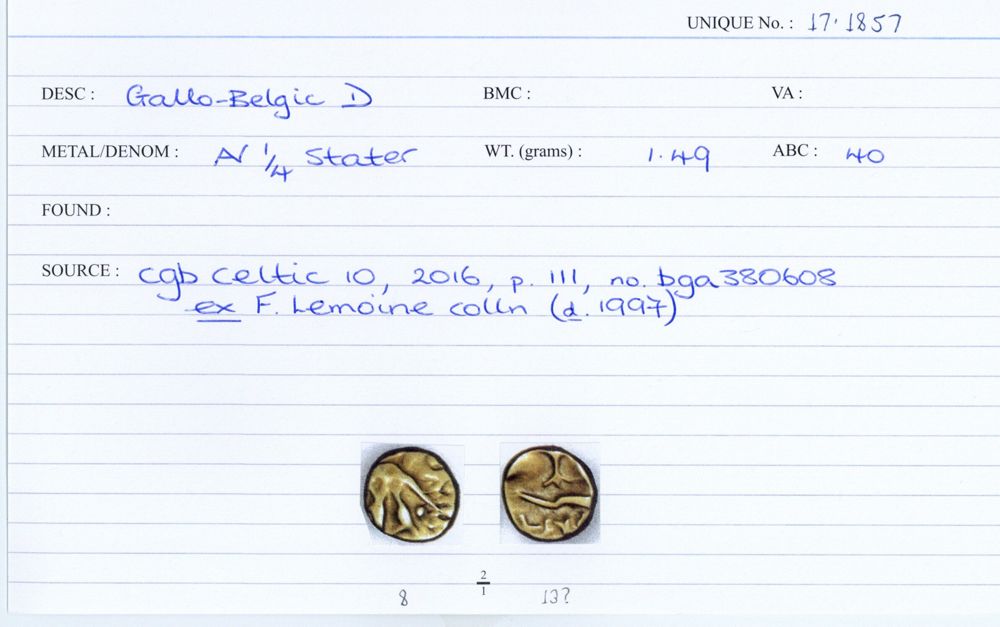 UNIQUE No. : 17.1857
DESC : Gallo-Belgic D BMC : VA :
METAL/DENOM : AV 1/4 Stater WT. (grams) : 1.49 ABC : 40
FOUND :
SOURCE : cgb Celtic 10, 2016, p. 111, no. bga380608
ex F. Lemoine colln (d. 1997)
2
1
8 13?